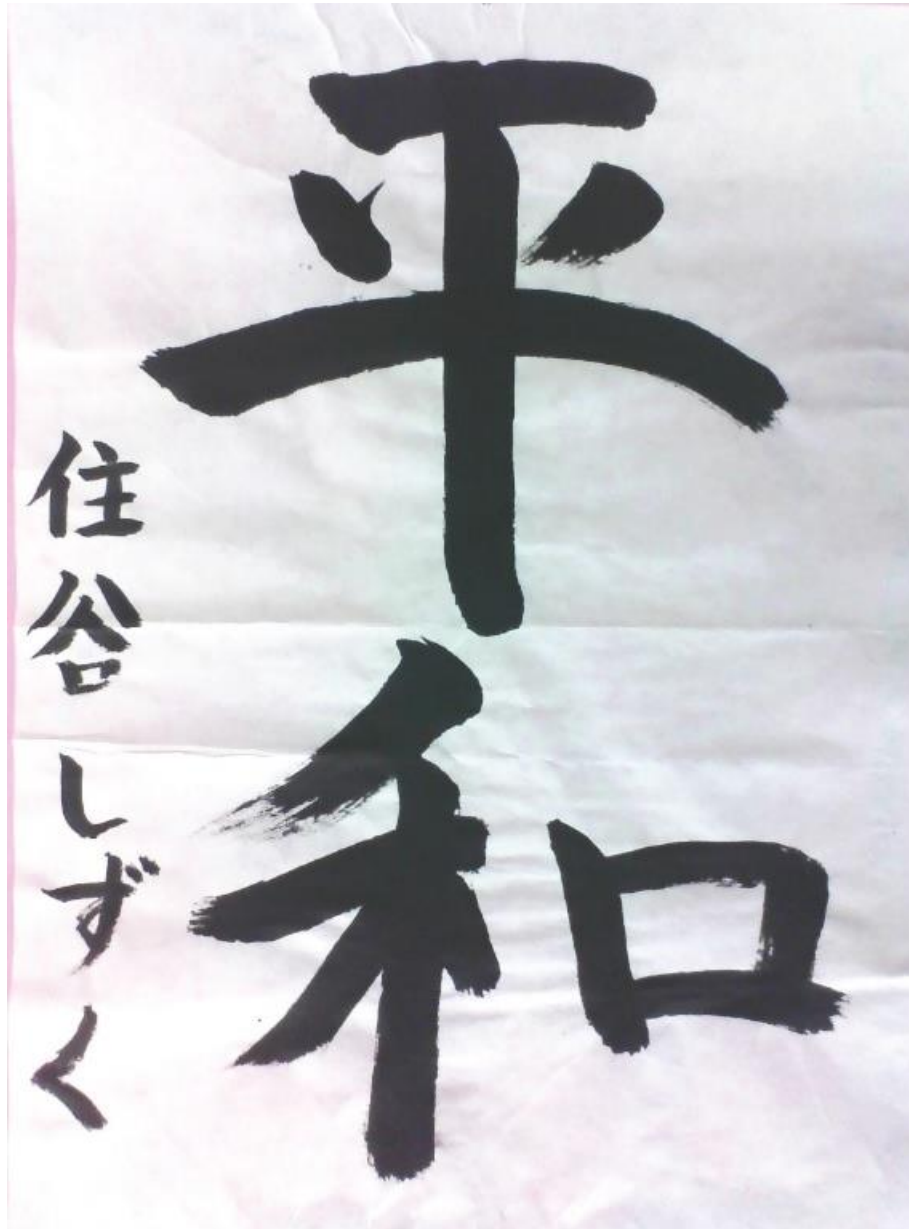 平和
住谷しずく